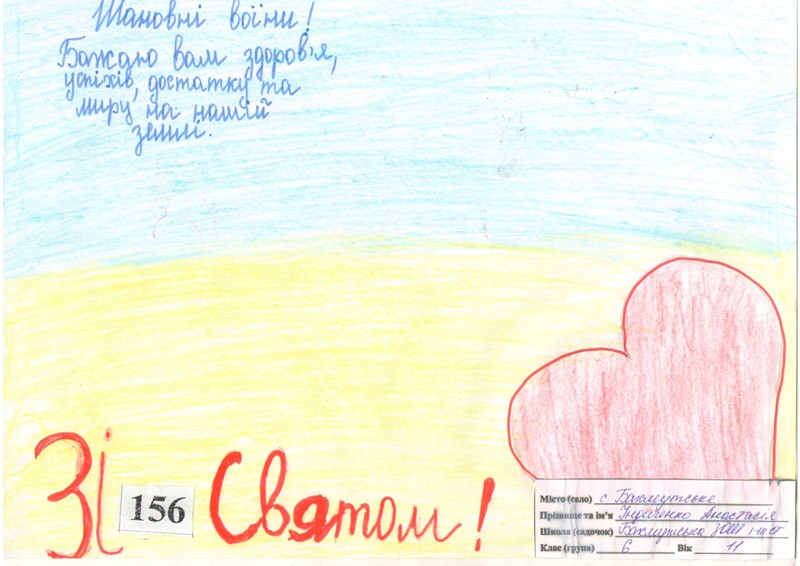 Шановні воїни!
Бажаю вам здоров'я,
успіхів, достатку та
миру на нашій
землі.
Зі 156 Святом!
Місто (село) с. Бахмутське
Прізвище та ім'я Анастасія
Школа (садочок) Бахмутська ЗОШ І-ІІІ ст
Клас (група) 6 Вік 11